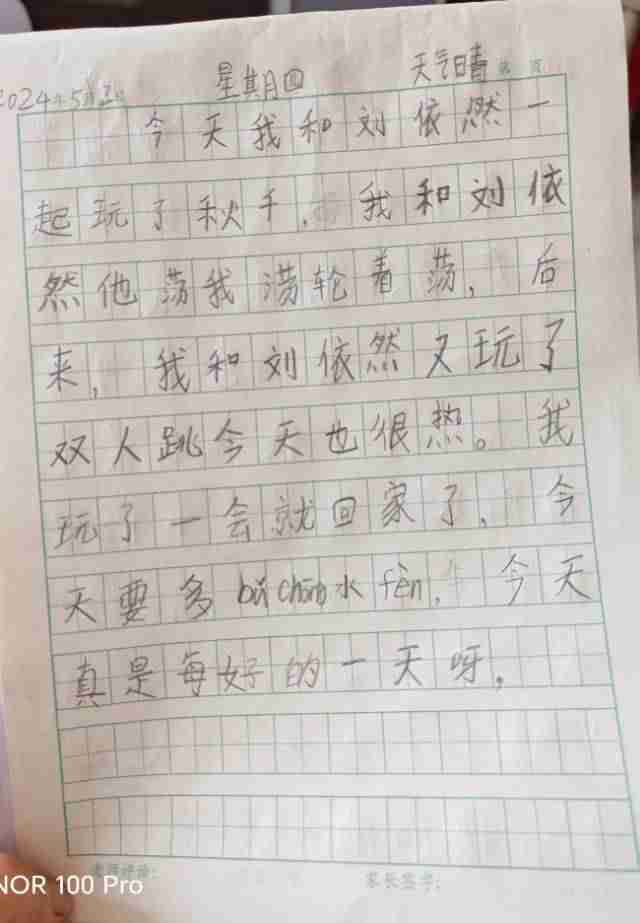 2024年5月2日 星期四 天气晴 第 页
今天我和刘依燃一
起玩了秋千. 我和刘依
然他荡我涝轮着荡,后
来,我和刘依然又玩了
双人跳今天也很热。我
玩了一会就回家了,今
天要多bǔ chōng水fèn,今天
真是每好的一天呀,
老师评语: 家长签字:
NOR 100 Pro